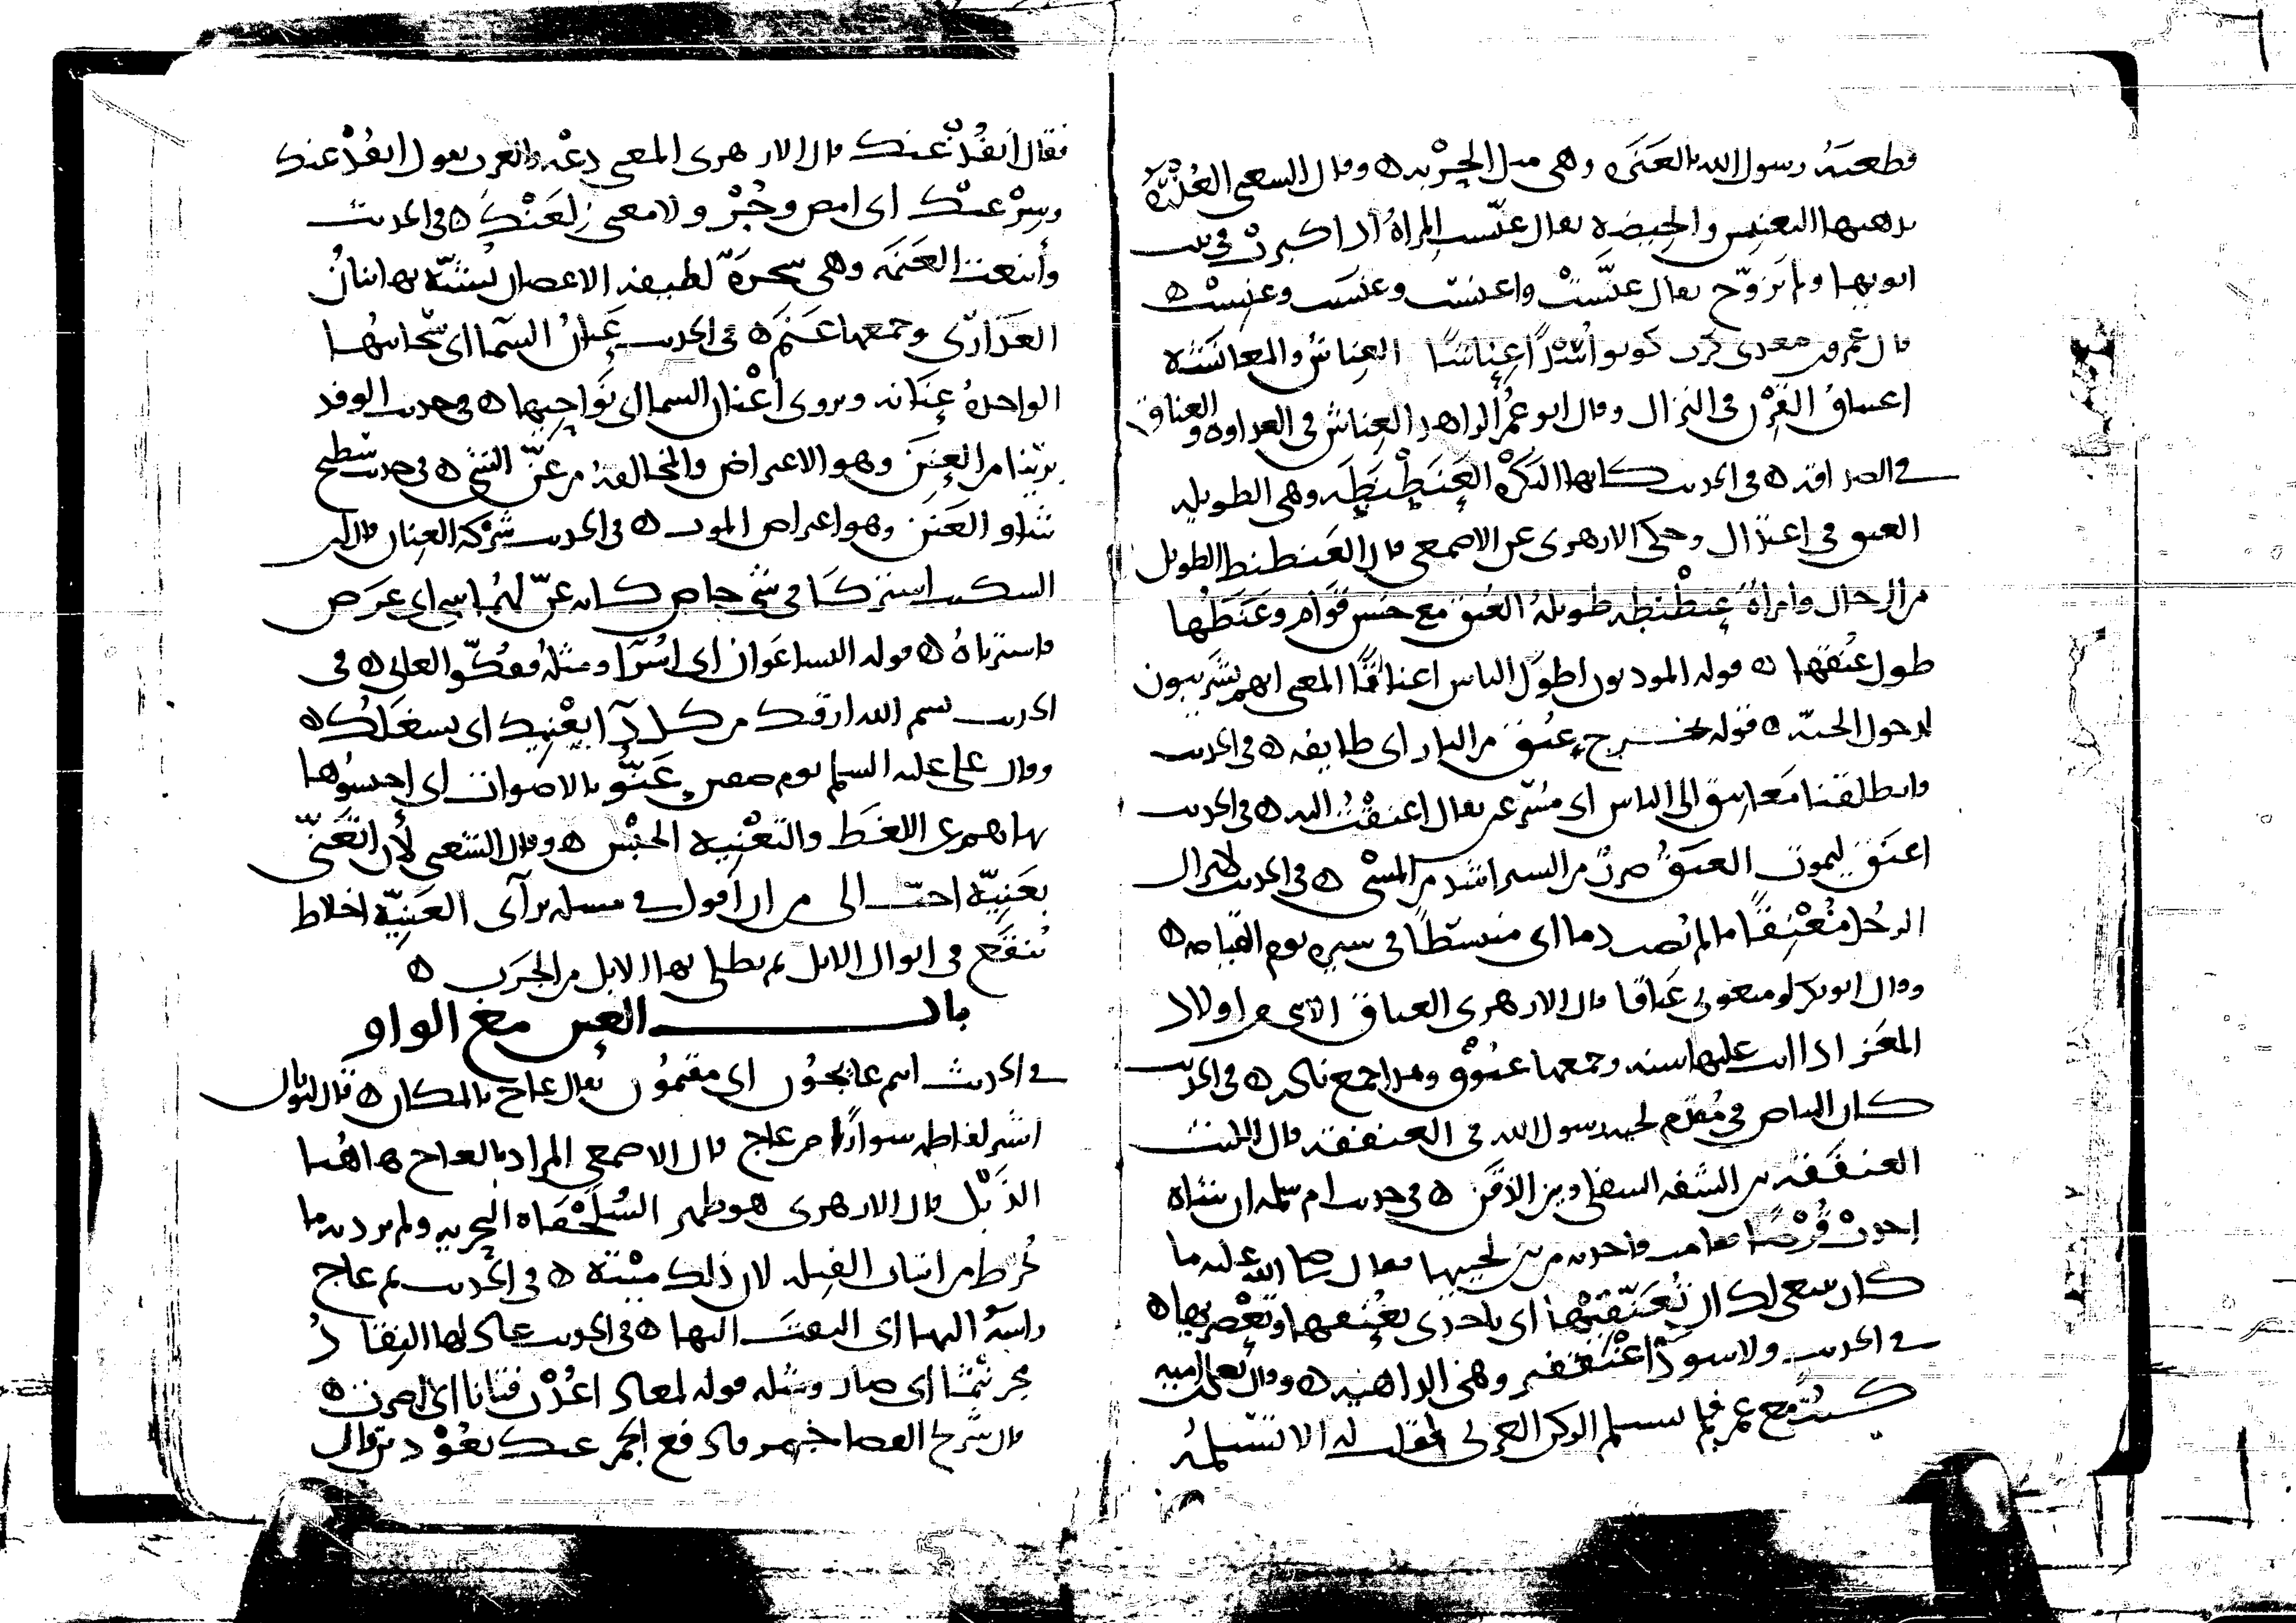 فطعنه رسول الله بالعنزه وهي مثل الحربه ه وقال الشعبي العذره
يذهبها التعنيس والحيضه يقال عنست المراة اذا كبرت في بيت
ابويها ولم تزوج يقال عنست واعنست وعنست وعنست ه
قال عمرو بن معدي كرب كونوا اسدا عناشا العناش والمعانشه
اعتناق القرن في النزال وقال ابو عمر الزاهد العناش في العداوه والعناق
في الصداقه ه في الحديث كانها البكره العنطنطه وهي الطويله
العنق في اعتدال وحكى الازهري عن الاصمعي قال العنطنط الطويل
من الرجال وامراة عنطنطه طويلة العنق مع حسن قوام وعنطها
طول عنقها ه قوله المودنون اطول الناس اعناقا المعنى انهم يشريبون
لدخول الجنه ه قوله يخرج عنق من النار اي طايفه ه في الحديث
فانطلقنا معانيق الى الناس اي مسرعين يقال اعنقت اليه ه في الحديث
اعنق ليموت العنق ضرب من السير اشد من المشي ه في الحديث لا يزال
الرجل معنقا ما لم يصب دما اي منبسطا في سيره يوم القيامه ه
وقال ابو بكر لو منعوني عناقا قال الازهري العناق الانثى من اولاد
المعز اذا اتت عليها سنه وجمعها عنوق وهذا جمع نادر ه في الحديث
كان البياض في مقدم لحيه رسول الله في العنفقه قال الليث
العنفقه بين الشفه السفلى وبين الذقن ه في حديث ام سلمه ان شاة
اخذت قرصا فقامت فاخذته من بين لحييها فقال صلى الله عليه ما
كان ينبغي لك ان تعنقيها اي تاخذي بعنقها وتعصريها ه
في الحديث ولا سودا عنقفير وهي الداهيه ه وقال يعلى بن اميه
كنت مع عمر فلم يستلم الركن الغربي فقلت له الا تستلمه
فقال انفذ عنك قال الازهري المعنى دعه والعرب تقول انفذ عنك
وسر عنك اي امض وجز ولا معنى لعنك ه في الحديث
وأينعت العنمه وهي شجرة لطيفه الاغصان يشبه بها بنان
العذارى وجمعها عنم ه في الحديث عنان السما اي سحابتها
الواحدة عنانه ويروى اعنان السما اي نواحيها ه في حديث الوفد
برينا من العنن وهو الاعتراض والمخالفة من عن الشي ه في حديث سطيح
شاو العنن وهو اعتراض الموت ه في الحديث شركة العنان قال ابن
السكيت اشتركا في شي خاص كانه عن لهما شي اي عرض
فاشترياه ه قوله النسا عوان اي اسرا ومثله وفكوا العاني ه في
الحديث بسم الله ارقيك من كل دا يعنيك اي يشغلك ه
وقال علي عليه السلم يوم صفين عنوا بالاصوات اي احبسوها
نهاهم عن اللغط والتعنيه الحبس ه وقال الشعبي لأن اتعنى
بعنيه احب الي من ان اقول في مسله براي العنيه اخلاط
تنقع في ابوال الابل ثم يطلى بها الابل من الجرب ه
باب العين مع الواو
في الحديث انتم عايجون اي مقيمون يقال عاج بالمكان ه قال لثوبان
اشتر لفاطمه سوارا من عاج قال الاصمعي المراد بالعاج هاهنا
الذبل قال الازهري هو ظهر السلحفاه البحريه ولم يرد به ما
يخرط من انياب الفيله لان ذلك ميته ه في الحديث ثم عاج
راسه اليها اي التفت اليها ه في الحديث عاد لها النقاد
مجرنثما اي صار ومثله قوله لمعاذ اعدت فتانا اي اصرت ه
قال شريح القضا جمر فادفع الجمر عنك بعودين قال